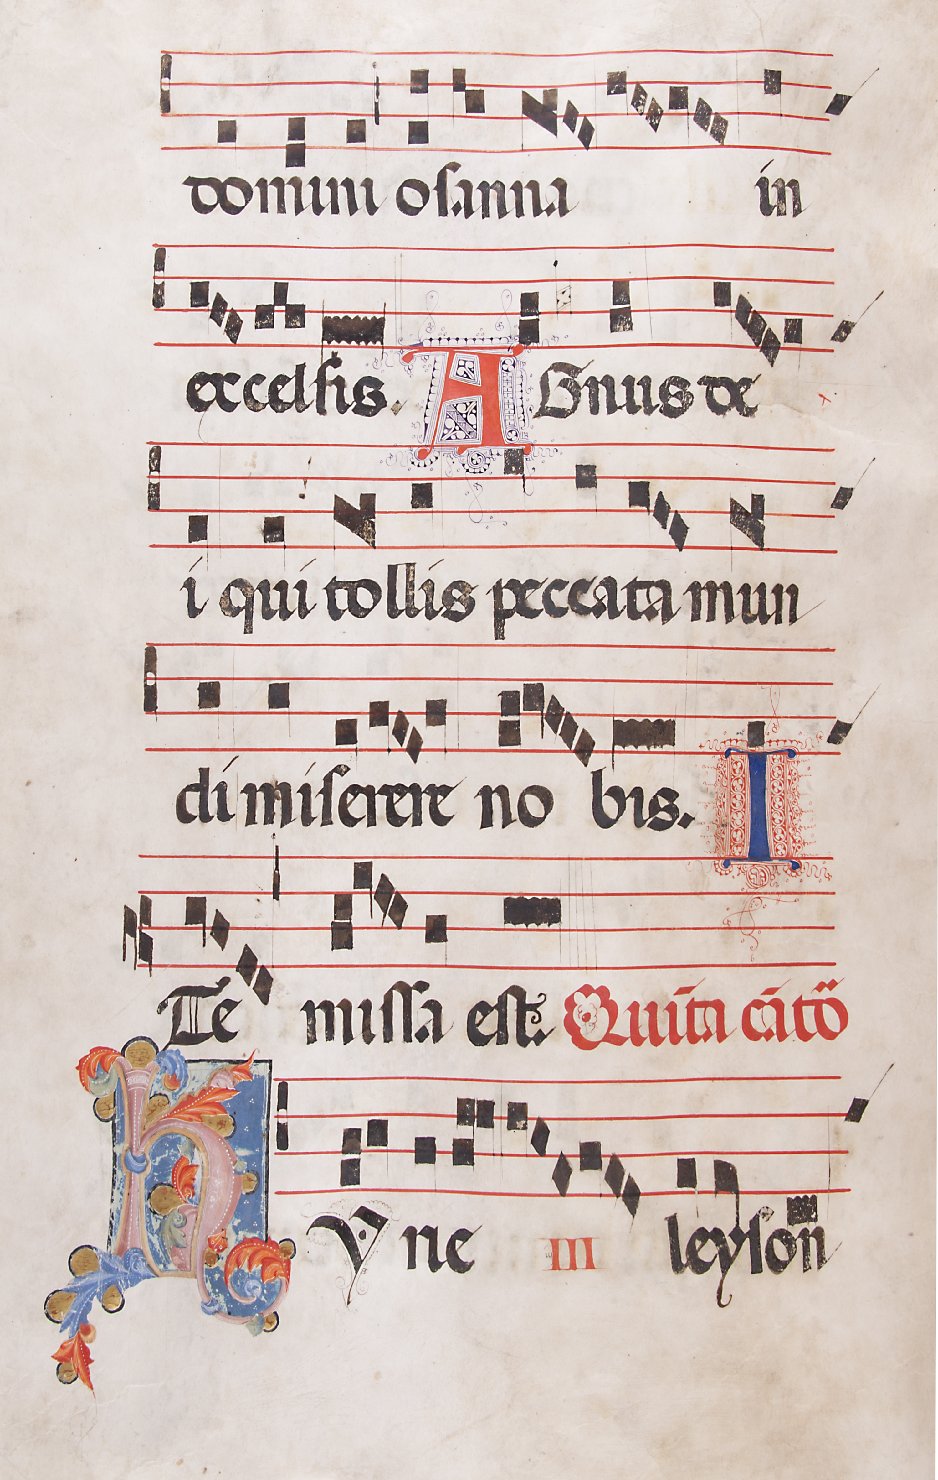 domini osanna in
excelsis. AGnus de
i qui tollis peccata mun
di miserere no bis. I
Te missa est. Quīta cātō
kyrne m leyson